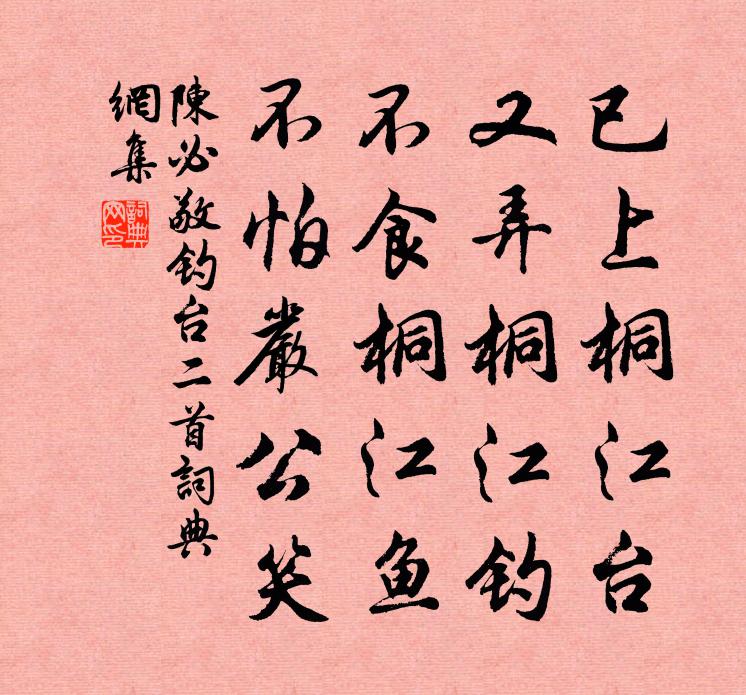 已上桐江台
又弄桐江钓
不食桐江鱼
不怕嚴公笑
陳必敬钓台二首詞典
網集
詞典網印